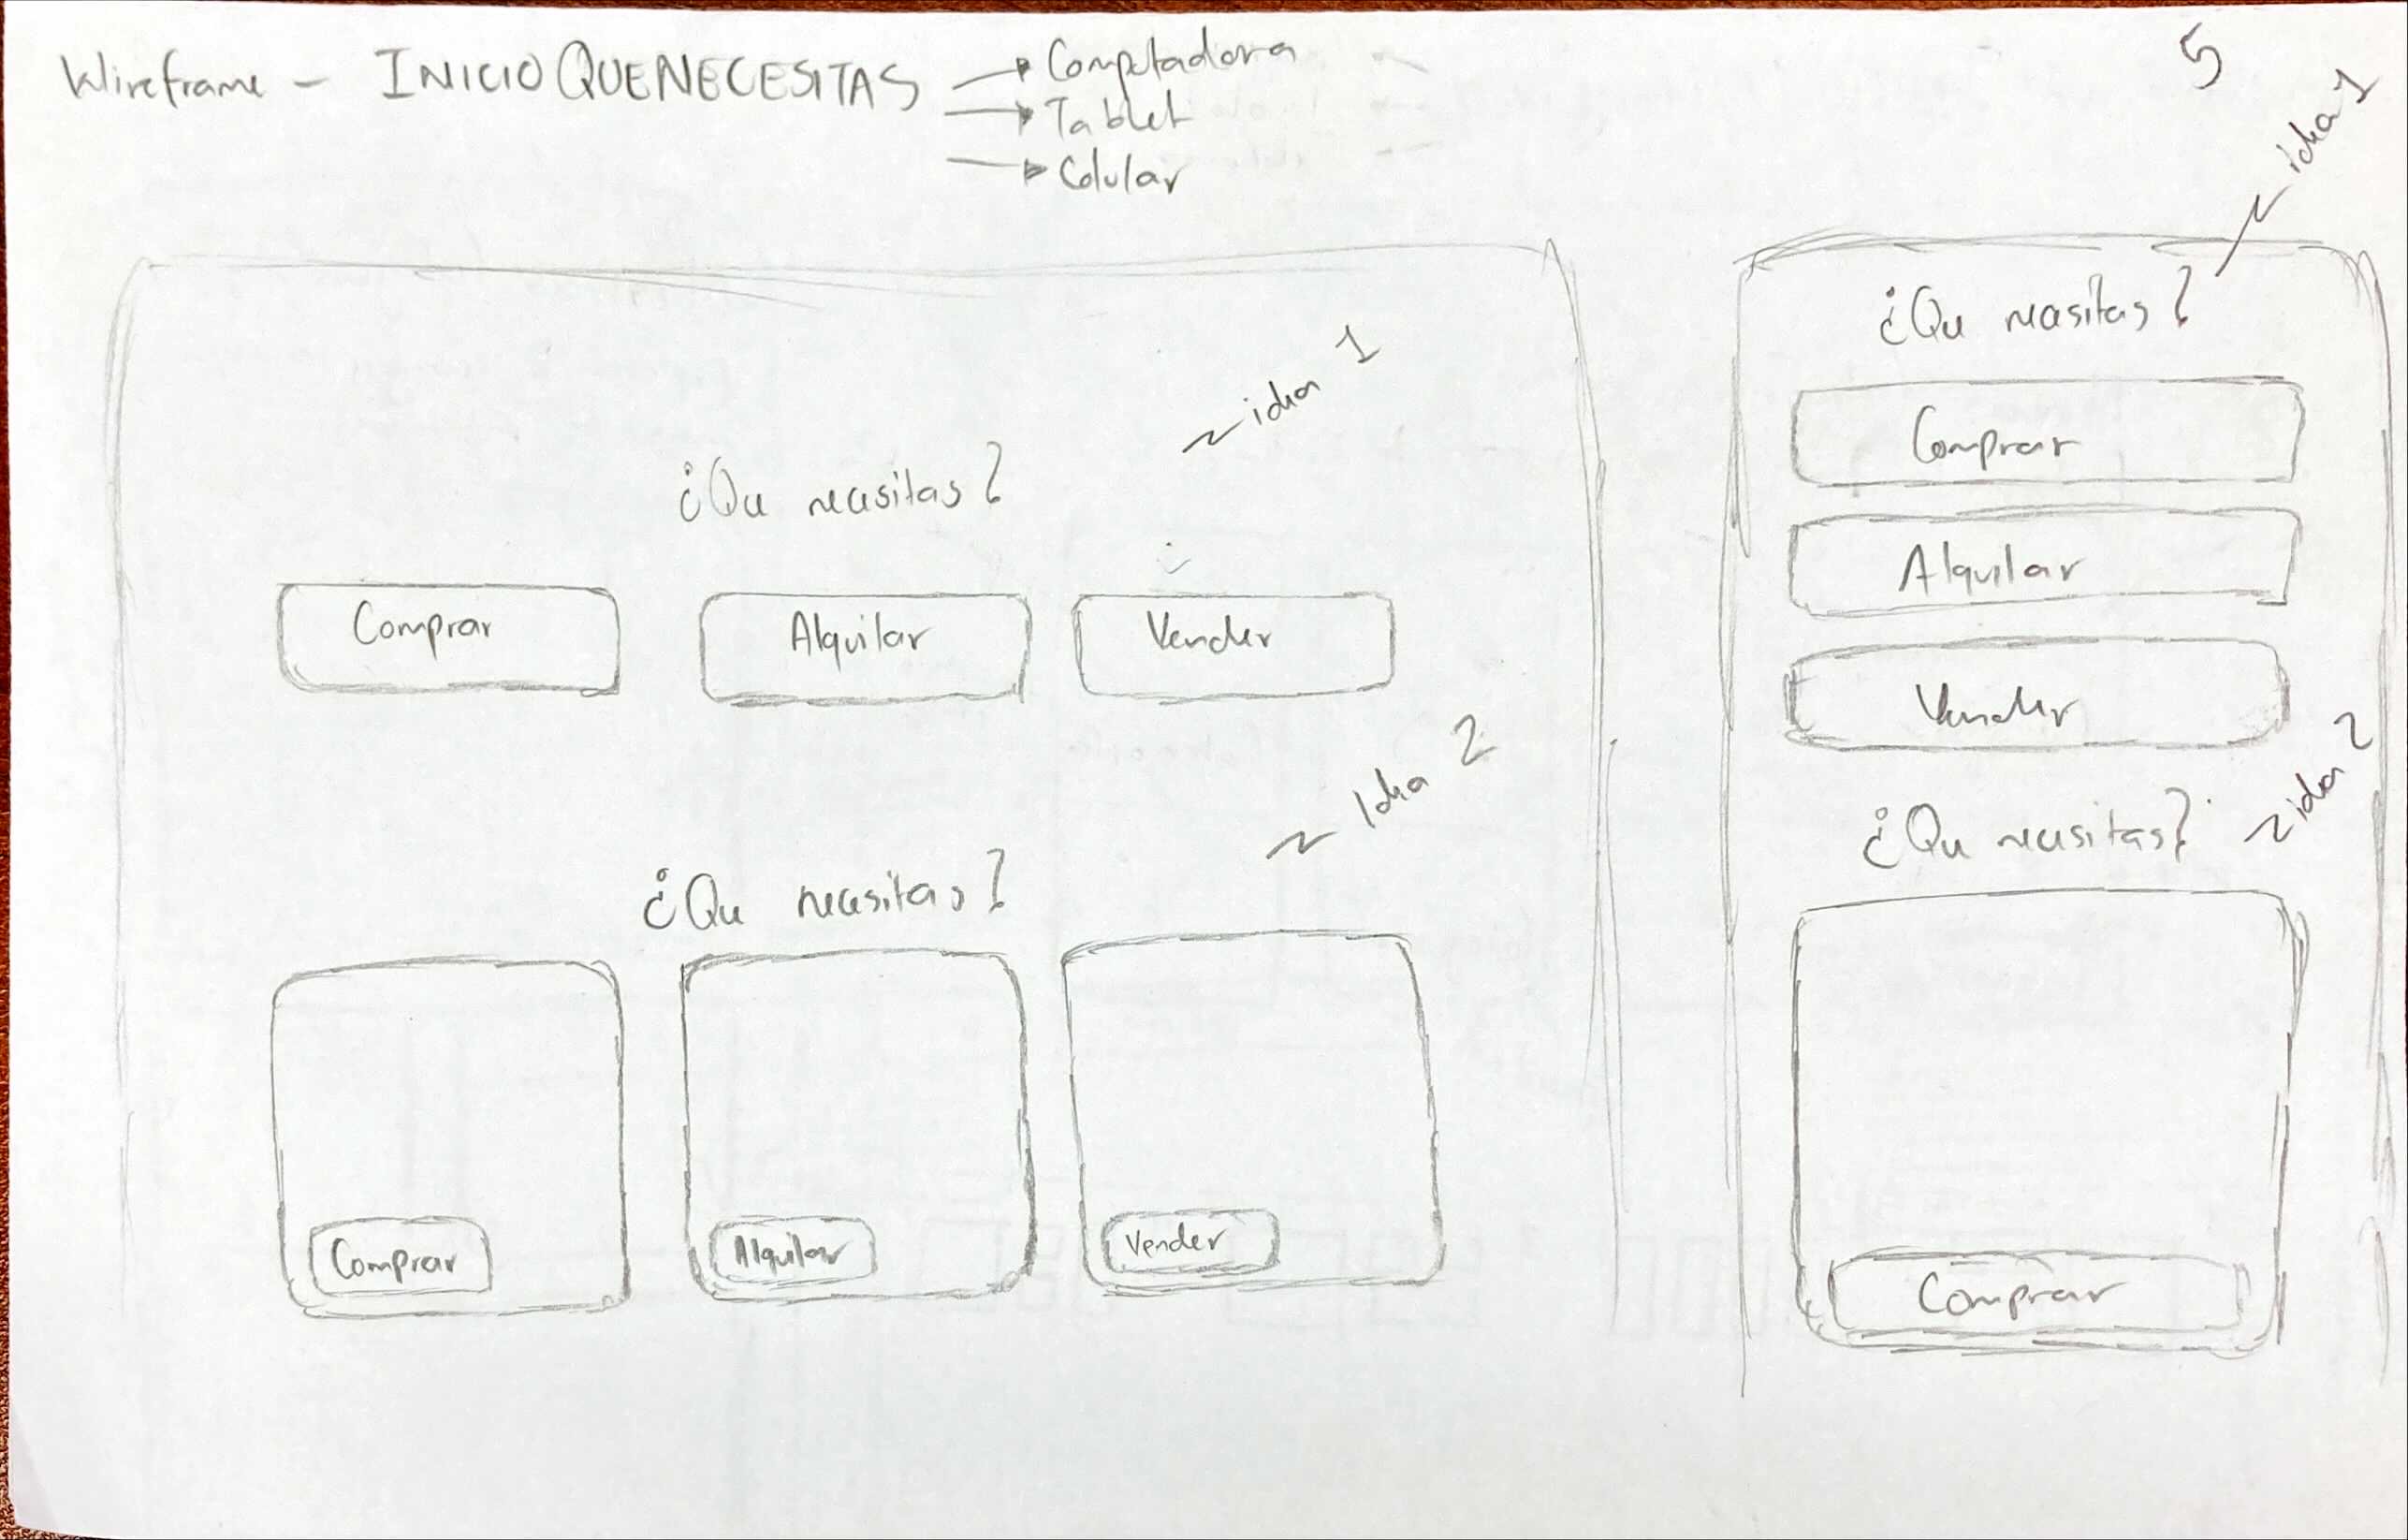 Wireframe - INICIO QUE NECESITAS
Computadora
Tablet
Celular
5
idea 1
¿Que necesitas?
Comprar
Alquilar
Vender
idea 2
¿Que necesitas?
Comprar
Alquilar
Vender
idea 1
¿Que necesitas?
Comprar
Alquilar
Vender
idea 2
¿Que necesitas?
Comprar